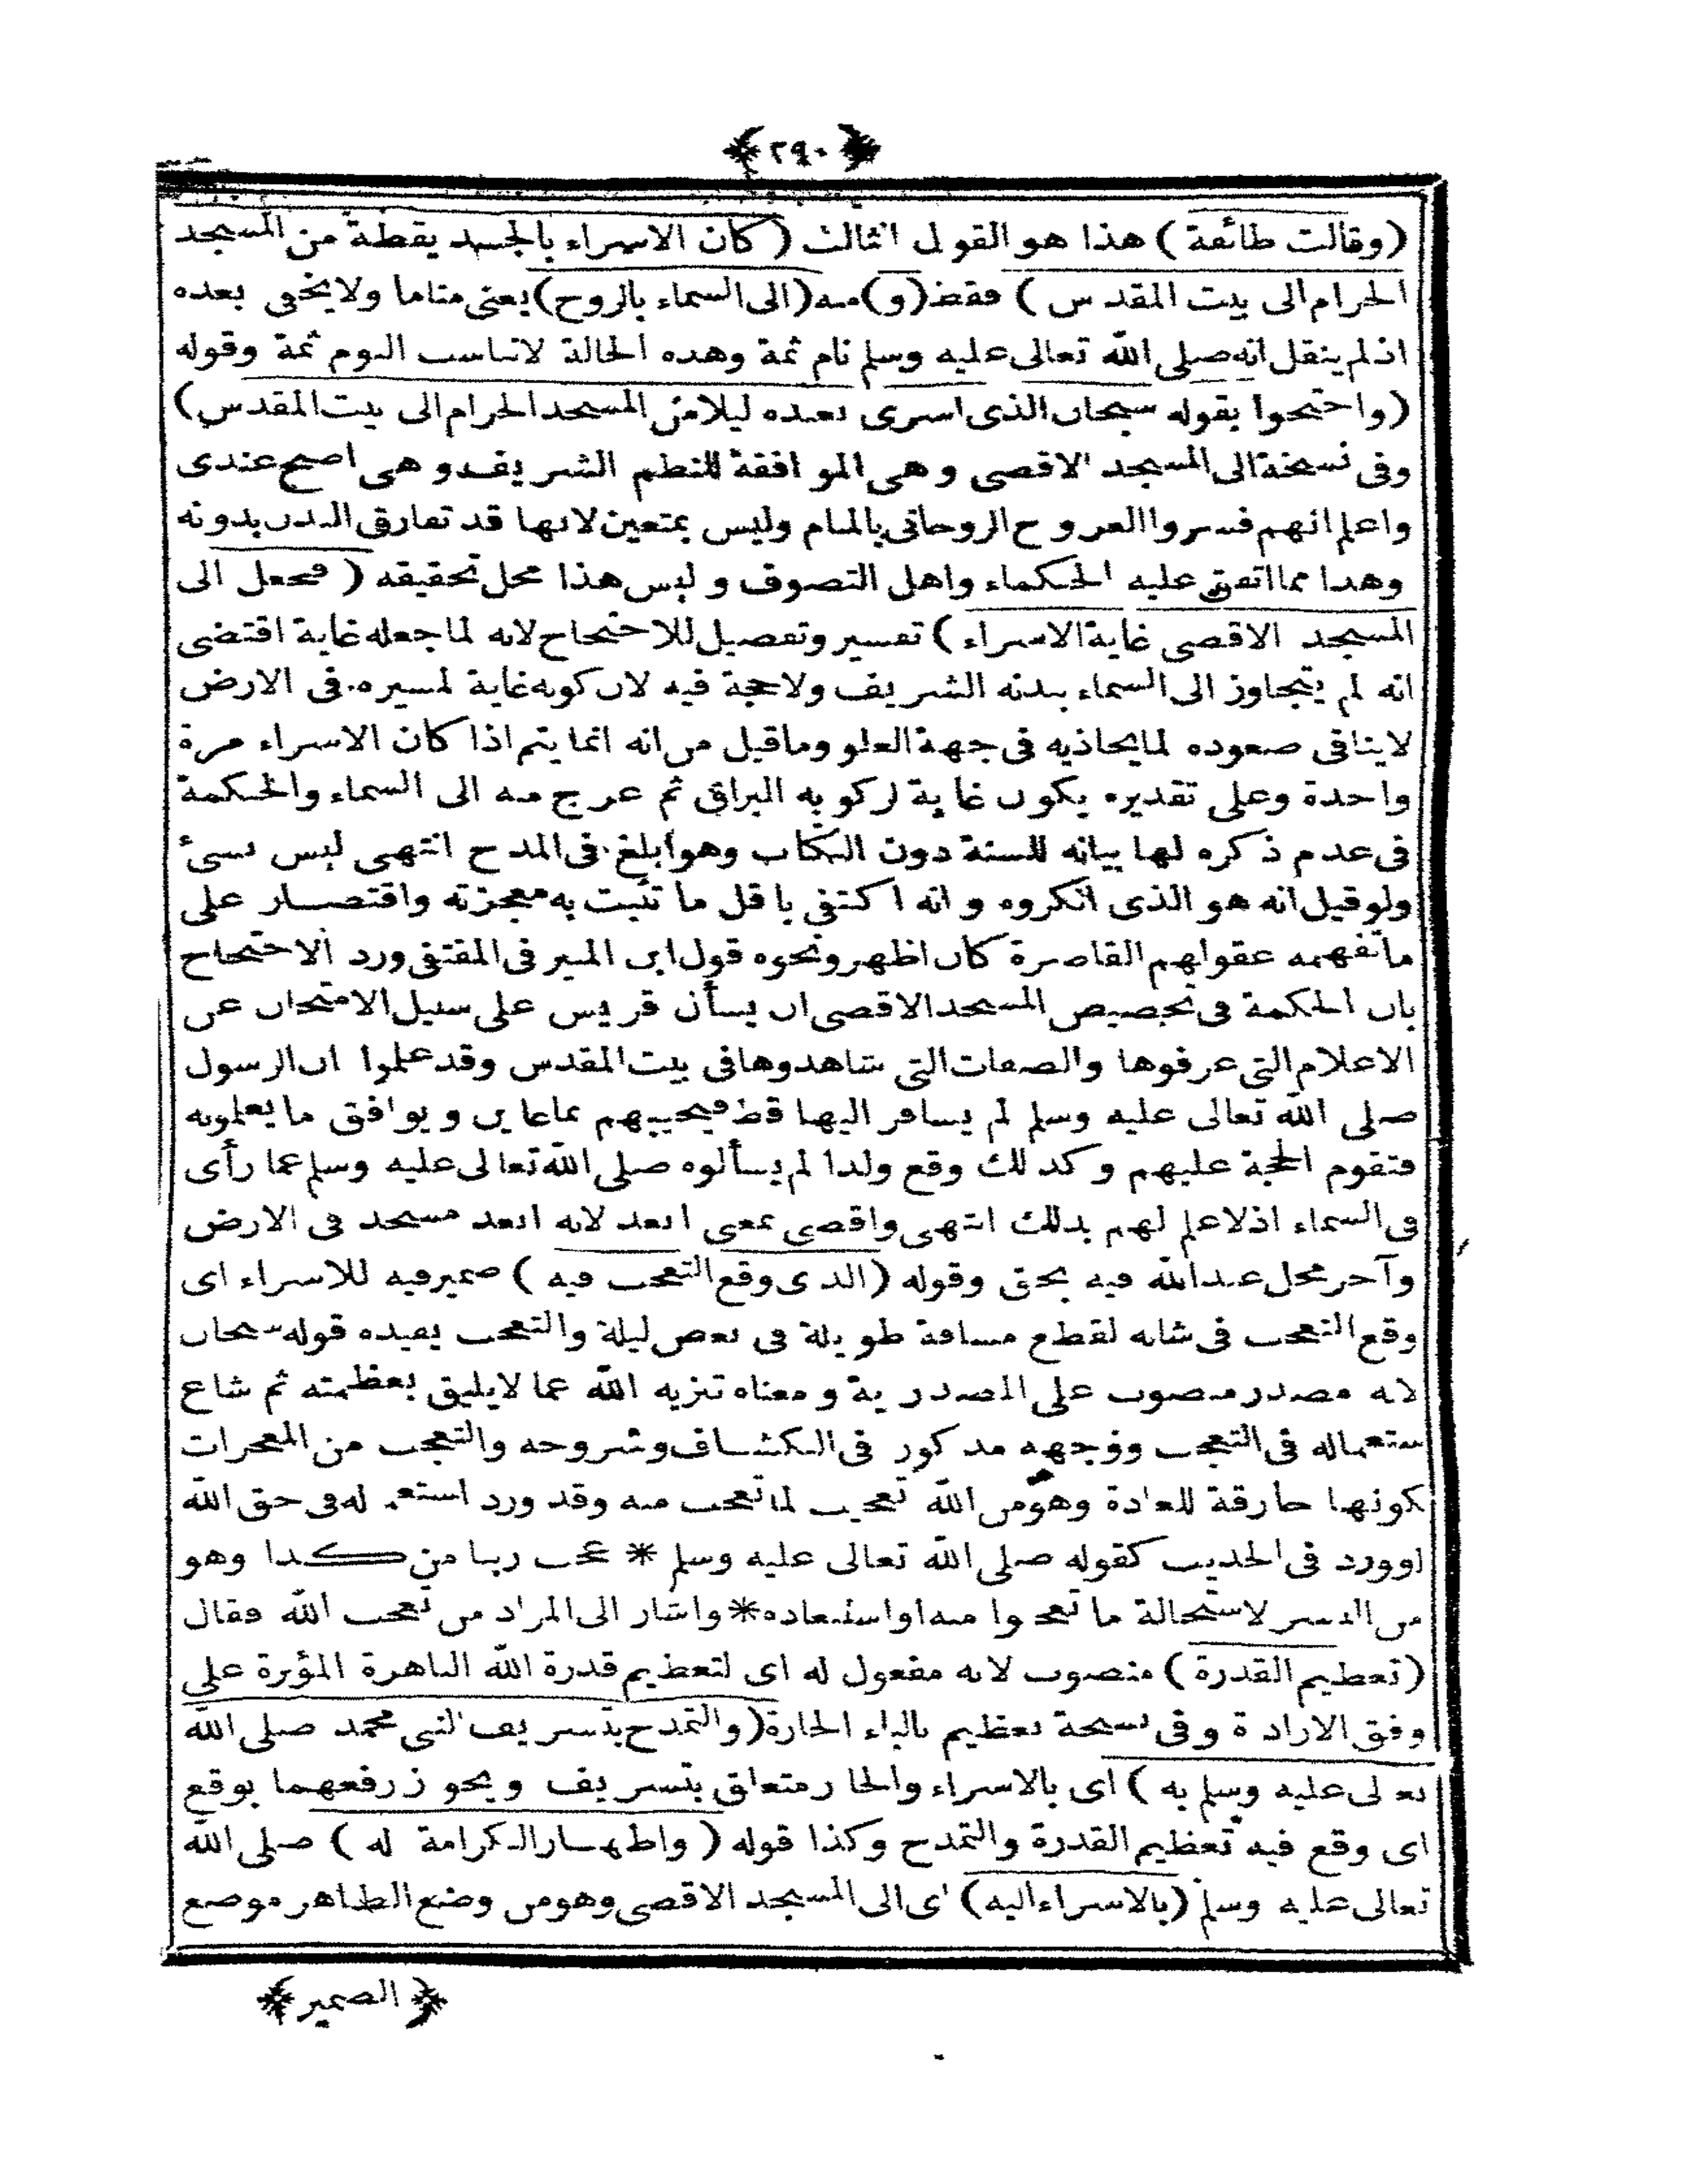 ﴿٢٩٠﴾
(وقالت طائفة) هذا هو القول الثالث (كان الاسراء بالجسد يقظة من المسجد
الحرام الى بيت المقدس) فقط (و) منه (الى السماء بالروح) يعنى مناما ولا يخفى بعده
اذ لم ينقل انه صلى الله تعالى عليه وسلم نام ثمة وهذه الحالة لاتناسب النوم ثمة وقوله
(واحتجوا بقوله سبحان الذى اسرى بعبده ليلا من المسجد الحرام الى بيت المقدس)
وفى نسخة الى المسجد الاقصى وهى الموافقة للنظم الشريف وهى اصح عندى
واعلم انهم فسروا العروج الروحانى بالمنام وليس بمتعين لانها قد تفارق البدن بدونه
وهذا مما اتفق عليه الحكماء واهل التصوف وليس هذا محل تحقيقه (فجعل الى
المسجد الاقصى غاية الاسراء) تفسير وتفصيل للاحتجاج لانه لما جعله غاية اقتضى
انه لم يتجاوز الى السماء ببدنه الشريف ولا حجة فيه لان كونه غاية لمسيره فى الارض
لاينافى صعوده لما يحاذيه فى جهة العلو وما قيل من انه انما يتم اذا كان الاسراء مرة
واحدة وعلى تقديره يكون غاية لركوبه البراق ثم عرج منه الى السماء والحكمة
فى عدم ذكره لها بيانه للسنة دون الكتاب وهو ابلغ فى المدح انتهى ليس بسئ
ولو قيل انه هو الذى انكروه وانه اكتفى باقل ما تثبت به معجزته واقتصار على
ما تفهمه عقولهم القاصرة كان اظهر ونحوه قول ابن المنير فى المقتفى ورد الاحتجاج
بان الحكمة فى تخصيص المسجد الاقصى ان يسأل قريش على سبيل الامتحان عن
الاعلام التى عرفوها والصفات التى شاهدوها فى بيت المقدس وقد علموا ان الرسول
صلى الله تعالى عليه وسلم لم يسافر اليها قط فيجيبهم بما عاين ويوافق ما يعلمونه
فتقوم الحجة عليهم وكذلك وقع ولذا لم يسألوه صلى الله تعالى عليه وسلم عما رأى
فى السماء اذ لا علم لهم بذلك انتهى واقصى بمعنى ابعد لانه ابعد مسجد فى الارض
وآخر محل عبد الله فيه بحق وقوله (الذى وقع التعجب فيه) ضمير فيه للاسراء اى
وقع التعجب فى شانه لقطع مسافة طويلة فى بعض ليلة والتعجب يفيده قوله سبحان
لانه مصدر منصوب على المصدرية ومعناه تنزيه الله عما لايليق بعظمته ثم شاع
ستعماله فى التعجب ووجهه مذكور فى الكشاف وشروحه والتعجب من المعجزات
كونها خارقة للعادة وهو من الله تعجيب لما تعجب منه وقد ورد استعماله فى حق الله
اوورد فى الحديث كقوله صلى الله تعالى عليه وسلم * عجب ربنا من كذا وهو
من البشر لاستحالة ما تعجبوا منه او استبعاده * واشار الى المراد من تعجب الله فقال
(تعظيم القدرة) منصوب لانه مفعول له اى لتعظيم قدرة الله الباهرة المؤثرة على
وفق الارادة وفى نسخة بعظيم بالباء الجارة (والتمدح بتشريف النبى محمد صلى الله
تعالى عليه وسلم به) اى بالاسراء والجار متعلق بتشريف ويجوز رفعهما بوقع
اى وقع فيه تعظيم القدرة والتمدح وكذا قوله (واظهار الكرامة له) صلى الله
تعالى عليه وسلم (بالاسراء اليه) اى الى المسجد الاقصى وهو من وضع الظاهر موضع
﴿الضمير﴾